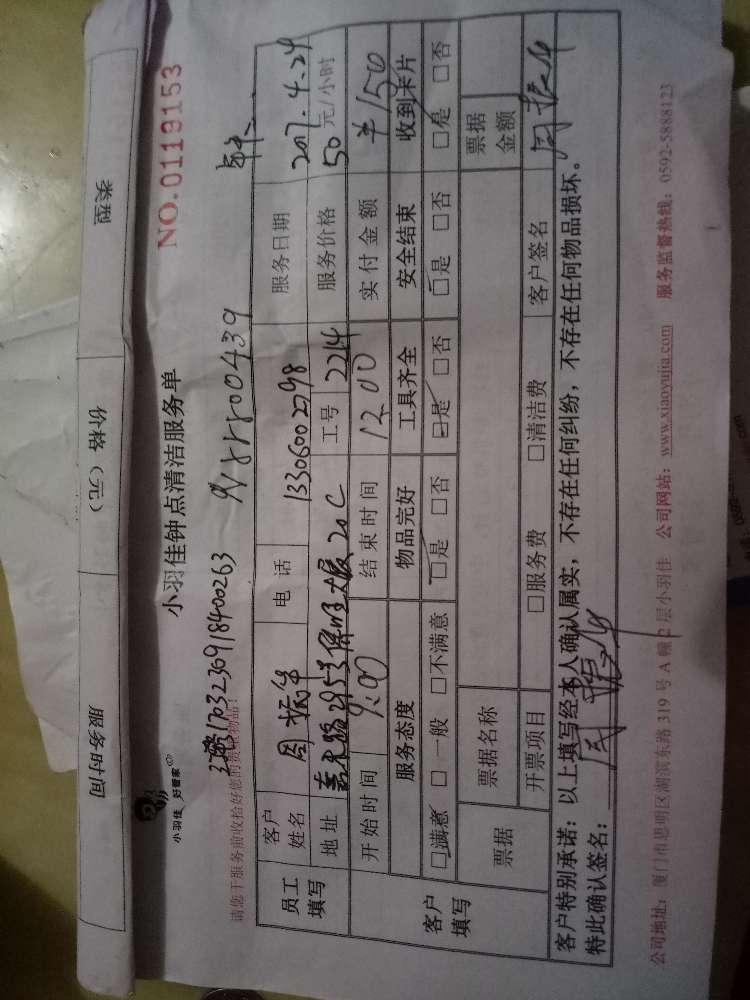 服务时间 价格（元） 类型
小羽佳 好管家
小羽佳钟点清洁服务单 NO.0119153
1703230918400263
请您于服务前收拾好您的贵重物品！
员工填写 客户姓名 周振华 电话 13306002798 服务日期 2017.4.24
地址 20C 工号 2214 服务价格 50元/小时
开始时间 9:00 结束时间 12:00 实付金额 ¥150
客户填写 服务态度 物品完好 工具齐全 安全结束 收到卡片
□满意 □一般 □不满意 □是 □否 □是 □否 □是 □否 □是 □否
票据 票据名称 票据金额
开票项目 □服务费 □清洁费 客户签名 周振华
客户特别承诺：以上填写经本人确认属实，不存在任何纠纷，不存在任何物品损坏。
特此确认签名：周振华
公司地址：厦门市思明区湖滨东路319号A幢2层小羽佳 公司网站：www.xiaoyujia.com 服务监督热线：0592-5888123